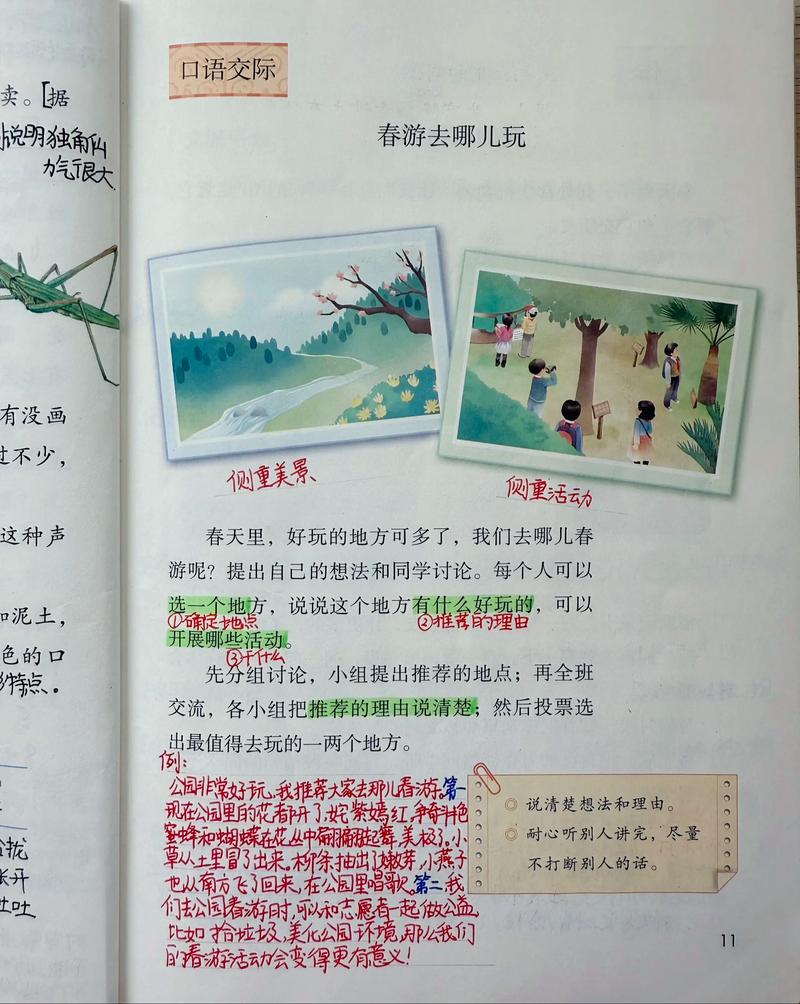 卖。[据
说明独角仙
力气很大
有没画
过不少，
这种声
和泥土，
色的口
特点。
拢
张开
吐
口语交际
春游去哪儿玩
侧重美景
侧重活动
春天里，好玩的地方可多了，我们去哪儿春
游呢？提出自己的想法和同学讨论。每个人可以
选一个地方，说说这个地方有什么好玩的，可以
①确定地点
②推荐的理由
开展哪些活动。
③干什么
先分组讨论，小组提出推荐的地点；再全班
交流，各小组把推荐的理由说清楚；然后投票选
出最值得去玩的一两个地方。
例：
公园非常好玩、我推荐大家去那儿春游。第一
现在公园里的花都开了，姹紫嫣红，争奇斗艳
蜜蜂和蝴蝶在花丛中翩翩起舞，美极了。小
草从土里冒了出来。柳条抽出了嫩芽，小燕子
也从南方飞了回来，在公园里唱歌。第二，我
们去公园春游时，可以和志愿者一起做公益，
比如捡垃圾，美化公园环境，那么我们
的春游活动会变得更有意义！
◎ 说清楚想法和理由。
◎ 耐心听别人讲完，尽量
不打断别人的话。
11